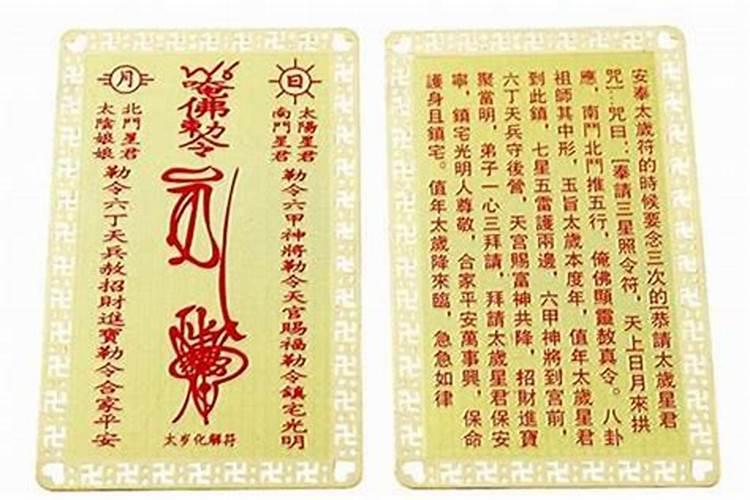 日
太陽星君
南鬥星君
勒令六甲神將勒令天官賜福勒令鎮宅光明
唵佛勅令
太岁化解符
月
北鬥星君
太陰娘娘
勒令六丁天兵赦招財進寶勒令合家平安
安奉太歲符的時候要念三次的[恭請太歲星君
咒]:咒曰:[奉請三星照令符，天上日月來拱
應，南鬥北鬥推五行，俺佛顯靈敖真令。八卦
祖師其中形，玉旨太歲本度年，值年太歲星君
到此鎮，七星五雷護兩邊，六甲神將到宮前，
六丁天兵守後營，天宮賜富神共降，招財進寶
聚當明，弟子一心三拜請，拜請太歲星君保安
寧，鎮宅光明人尊敬，合家平安萬事興，保命
護身且鎮宅。值年太歲降來臨，急急如律